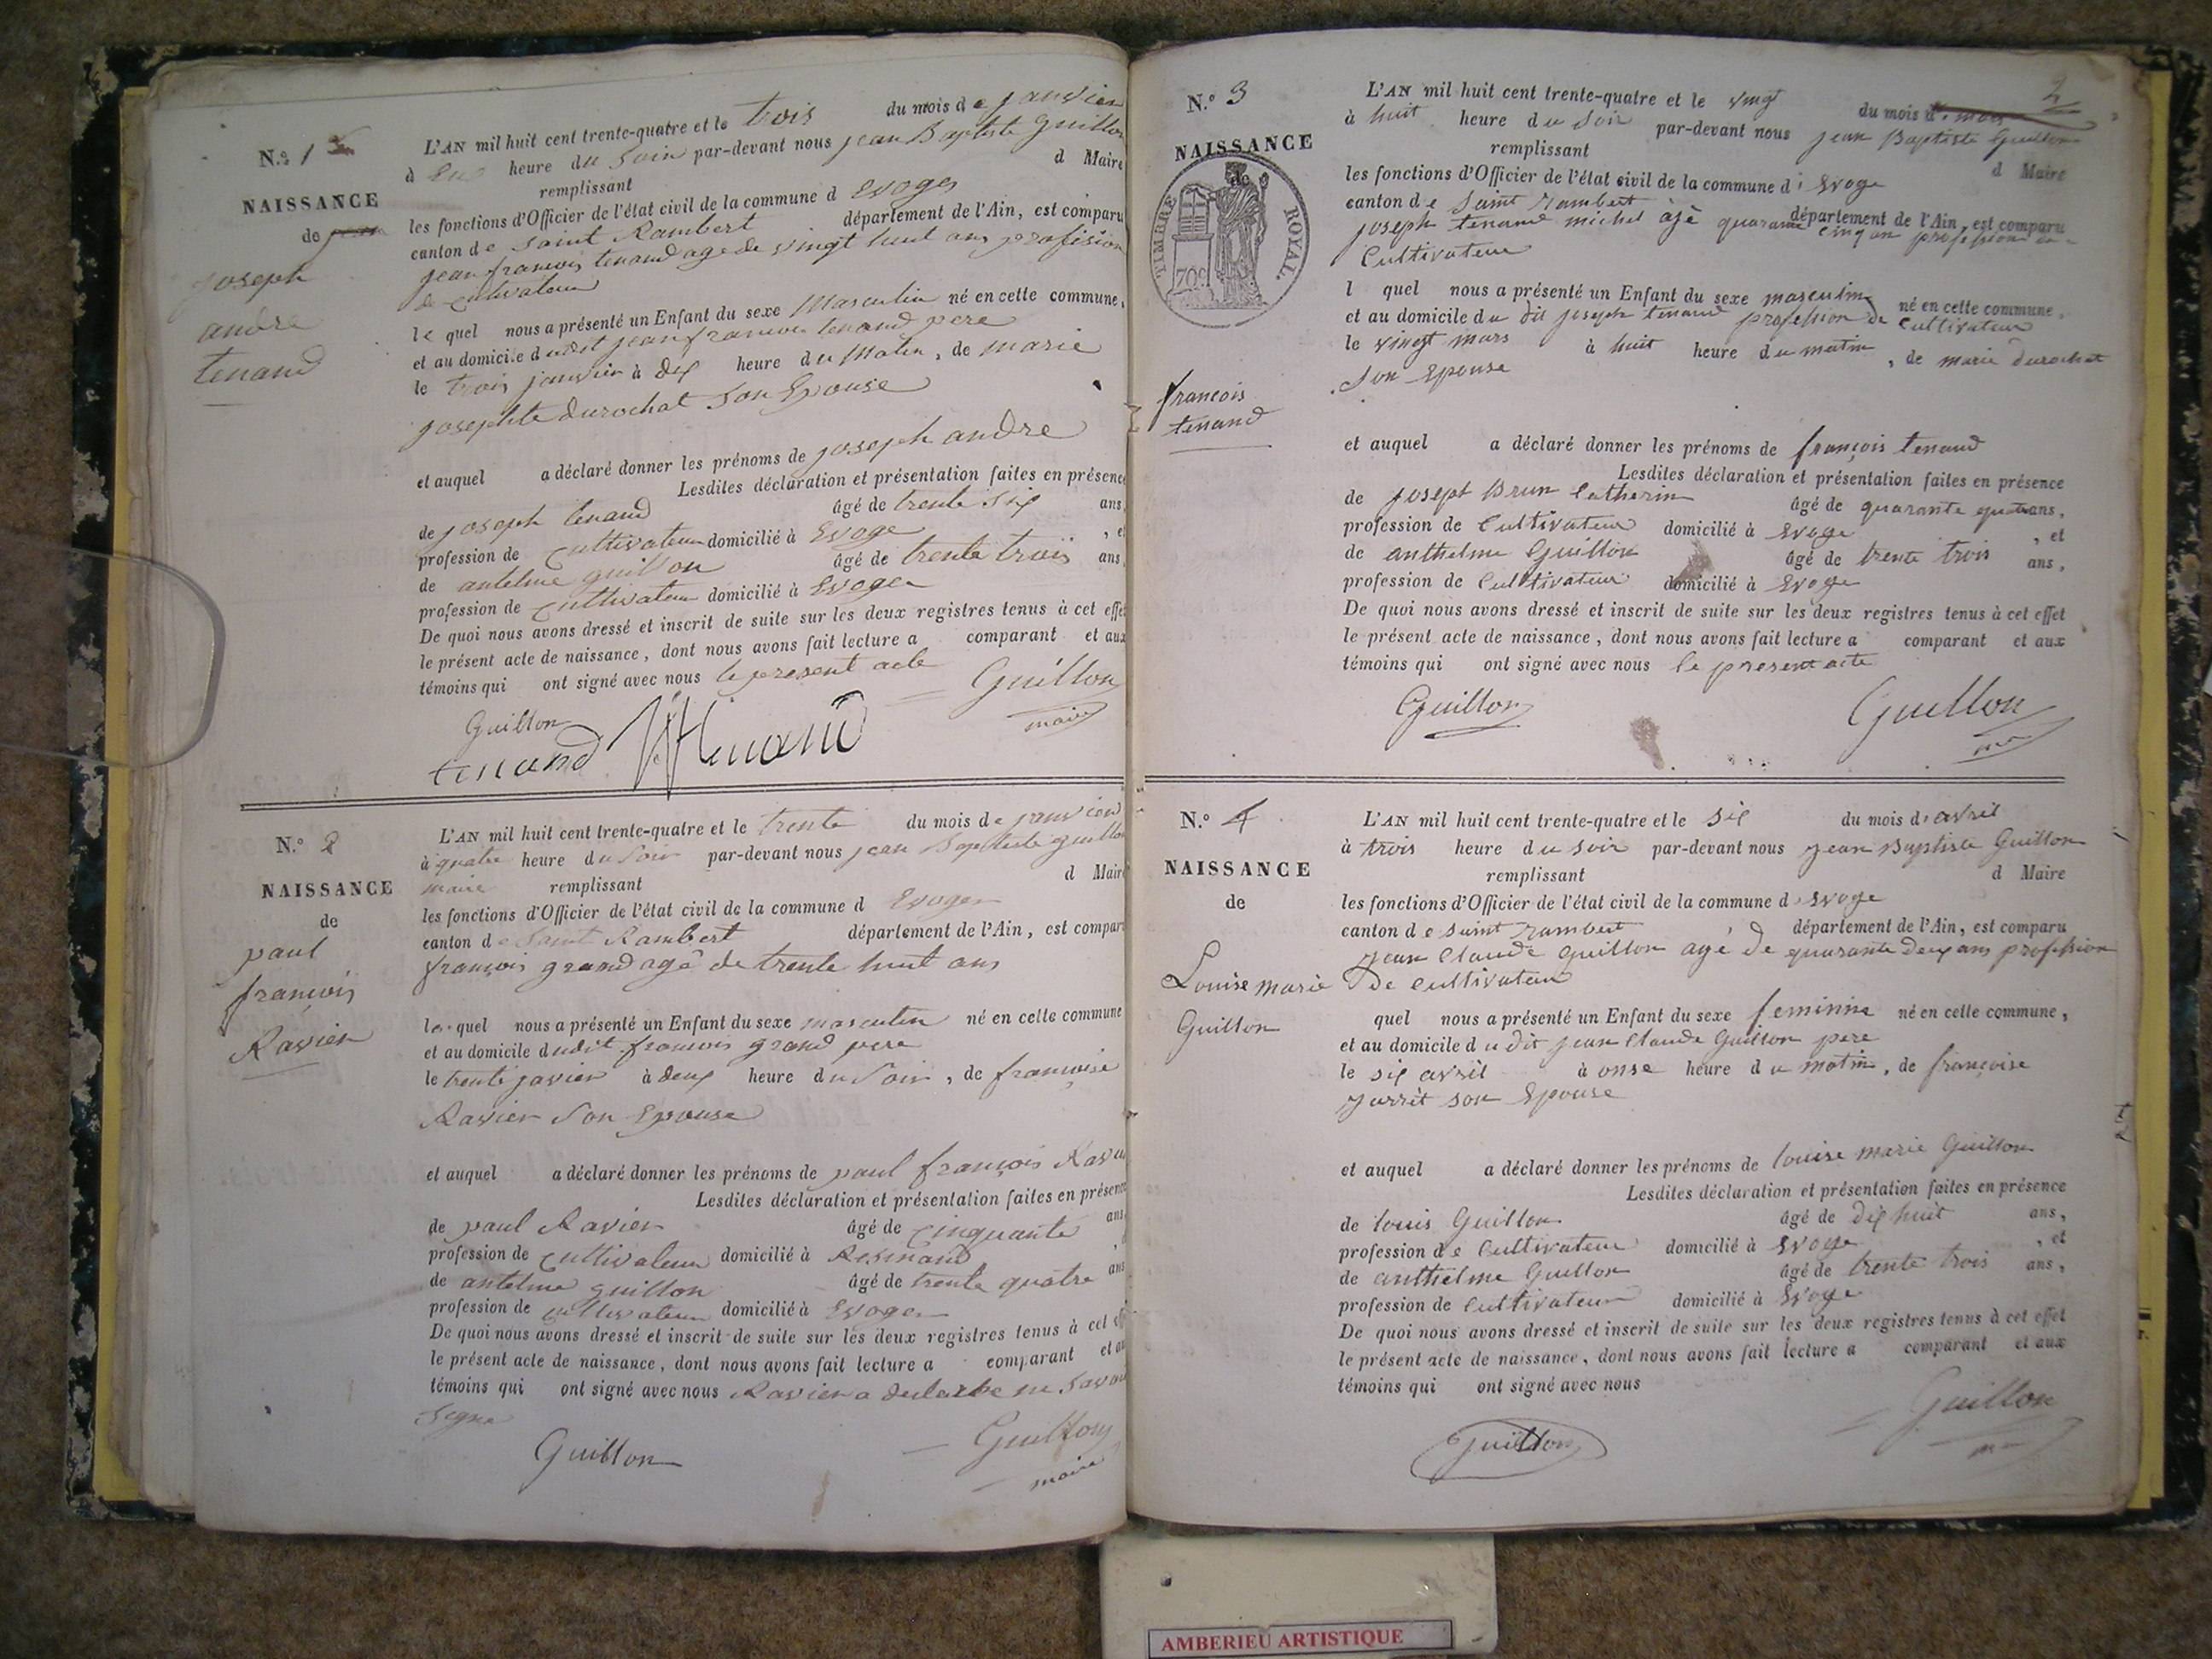 N.º 1
NAISSANCE
de jean
joseph
andre
tenand
L'AN mil huit cent trente-quatre et le trois du mois de janvier
à une heure du soir par-devant nous jean Baptiste Guillon
remplissant d Maire
les fonctions d'Officier de l'état civil de la commune d Evoges
canton de saint Rambert département de l'Ain, est comparu
jean francois tenand age de vingt huit ans profision
de cultivateur
le quel nous a présenté un Enfant du sexe Masculin né en cette commune,
et au domicile dudit jean francois tenand pere
le trois janvier à dix heure du Matin, de marie
josephte durochat son Epouse
et auquel a déclaré donner les prénoms de joseph andre
Lesdites déclaration et présentation faites en présence
de joseph tenand âgé de trente six ans,
profession de cultivateur domicilié à Evoge , et
de antelme guillon âgé de trente trois ans,
profession de cultivateur domicilié à Evoges
De quoi nous avons dressé et inscrit de suite sur les deux registres tenus à cet effet
le présent acte de naissance, dont nous avons fait lecture a comparant et aux
témoins qui ont signé avec nous le present acte
Guillon
maire
Guillon
tenand
N.º 2
NAISSANCE
de
paul
françois
Ravier
L'AN mil huit cent trente-quatre et le trente du mois de janvier
à quatre heure du soir par-devant nous jean Baptiste guillon
maire remplissant d Maire
les fonctions d'Officier de l'état civil de la commune d Evoges
canton de Saint Rambert département de l'Ain, est comparu
françois grand agé de trente huit ans
le quel nous a présenté un Enfant du sexe masculin né en cette commune
et au domicile dudit francois grand pere
le trente javier à deux heure du soir, de françoise
Ravier son epouse
et auquel a déclaré donner les prénoms de paul françois Ravier
Lesdites déclaration et présentation faites en présence
de paul Ravier âgé de cinquante ans
profession de cultivateur domicilié à Resinand
de antelme guillon âgé de trente quatre ans
profession de cultivateur domicilié à Evoges
De quoi nous avons dressé et inscrit de suite sur les deux registres tenus à cet effet
le présent acte de naissance, dont nous avons fait lecture a comparant et aux
témoins qui ont signé avec nous Ravier a declaré ne savoir
signe
Guillon
Guillon
maire
2
N.º 3
NAISSANCE
de
TIMBRE ROYAL.
70c
françois
tenand
L'AN mil huit cent trente-quatre et le vingt du mois de mars
à huit heure du soir par-devant nous jean Baptiste Guillon
remplissant d Maire
les fonctions d'Officier de l'état civil de la commune d'Evoge
canton de saint rambert département de l'Ain, est comparu
joseph tenand michel âgé quarante cinq an profession de
Cultivateur
l quel nous a présenté un Enfant du sexe masculin né en cette commune,
et au domicile du dit joseph tenand profession de cultivateur
le vingt mars à huit heure du matin, de marie durochat
son Epouse
et auquel a déclaré donner les prénoms de françois tenand
Lesdites déclaration et présentation faites en présence
de joseph Brun Catherin âgé de quarante quatre ans,
profession de Cultivateur domicilié à Evoge , et
de anthelme Guillon âgé de trente trois ans,
profession de Cultivateur domicilié à Evoge
De quoi nous avons dressé et inscrit de suite sur les deux registres tenus à cet effet
le présent acte de naissance, dont nous avons fait lecture a comparant et aux
témoins qui ont signé avec nous le present acte
Guillon
Guillon
N.º 4
NAISSANCE
de
Louise marie
Guillon
L'AN mil huit cent trente-quatre et le six du mois d'avril
à trois heure du soir par-devant nous jean Baptiste Guillon
remplissant d Maire
les fonctions d'Officier de l'état civil de la commune d Evoge
canton de saint rambert département de l'Ain, est comparu
jean Claude Guillon agé de quarante deux ans profession
de cultivateur
quel nous a présenté un Enfant du sexe feminine né en cette commune,
et au domicile du dit jean Claude Guillon pere
le six avril à onse heure du matin, de françoise
jarret son Epouse
et auquel a déclaré donner les prénoms de louise marie Guillon
Lesdites déclaration et présentation faites en présence
de louis Guillon âgé de dix huit ans,
profession de Cultivateur domicilié à Evoge , et
de anthelme Guillon âgé de trente trois ans,
profession de Cultivateur domicilié à Evoge
De quoi nous avons dressé et inscrit de suite sur les deux registres tenus à cet effet
le présent acte de naissance, dont nous avons fait lecture a comparant et aux
témoins qui ont signé avec nous
Guillon
Guillon
AMBERIEU ARTISTIQUE